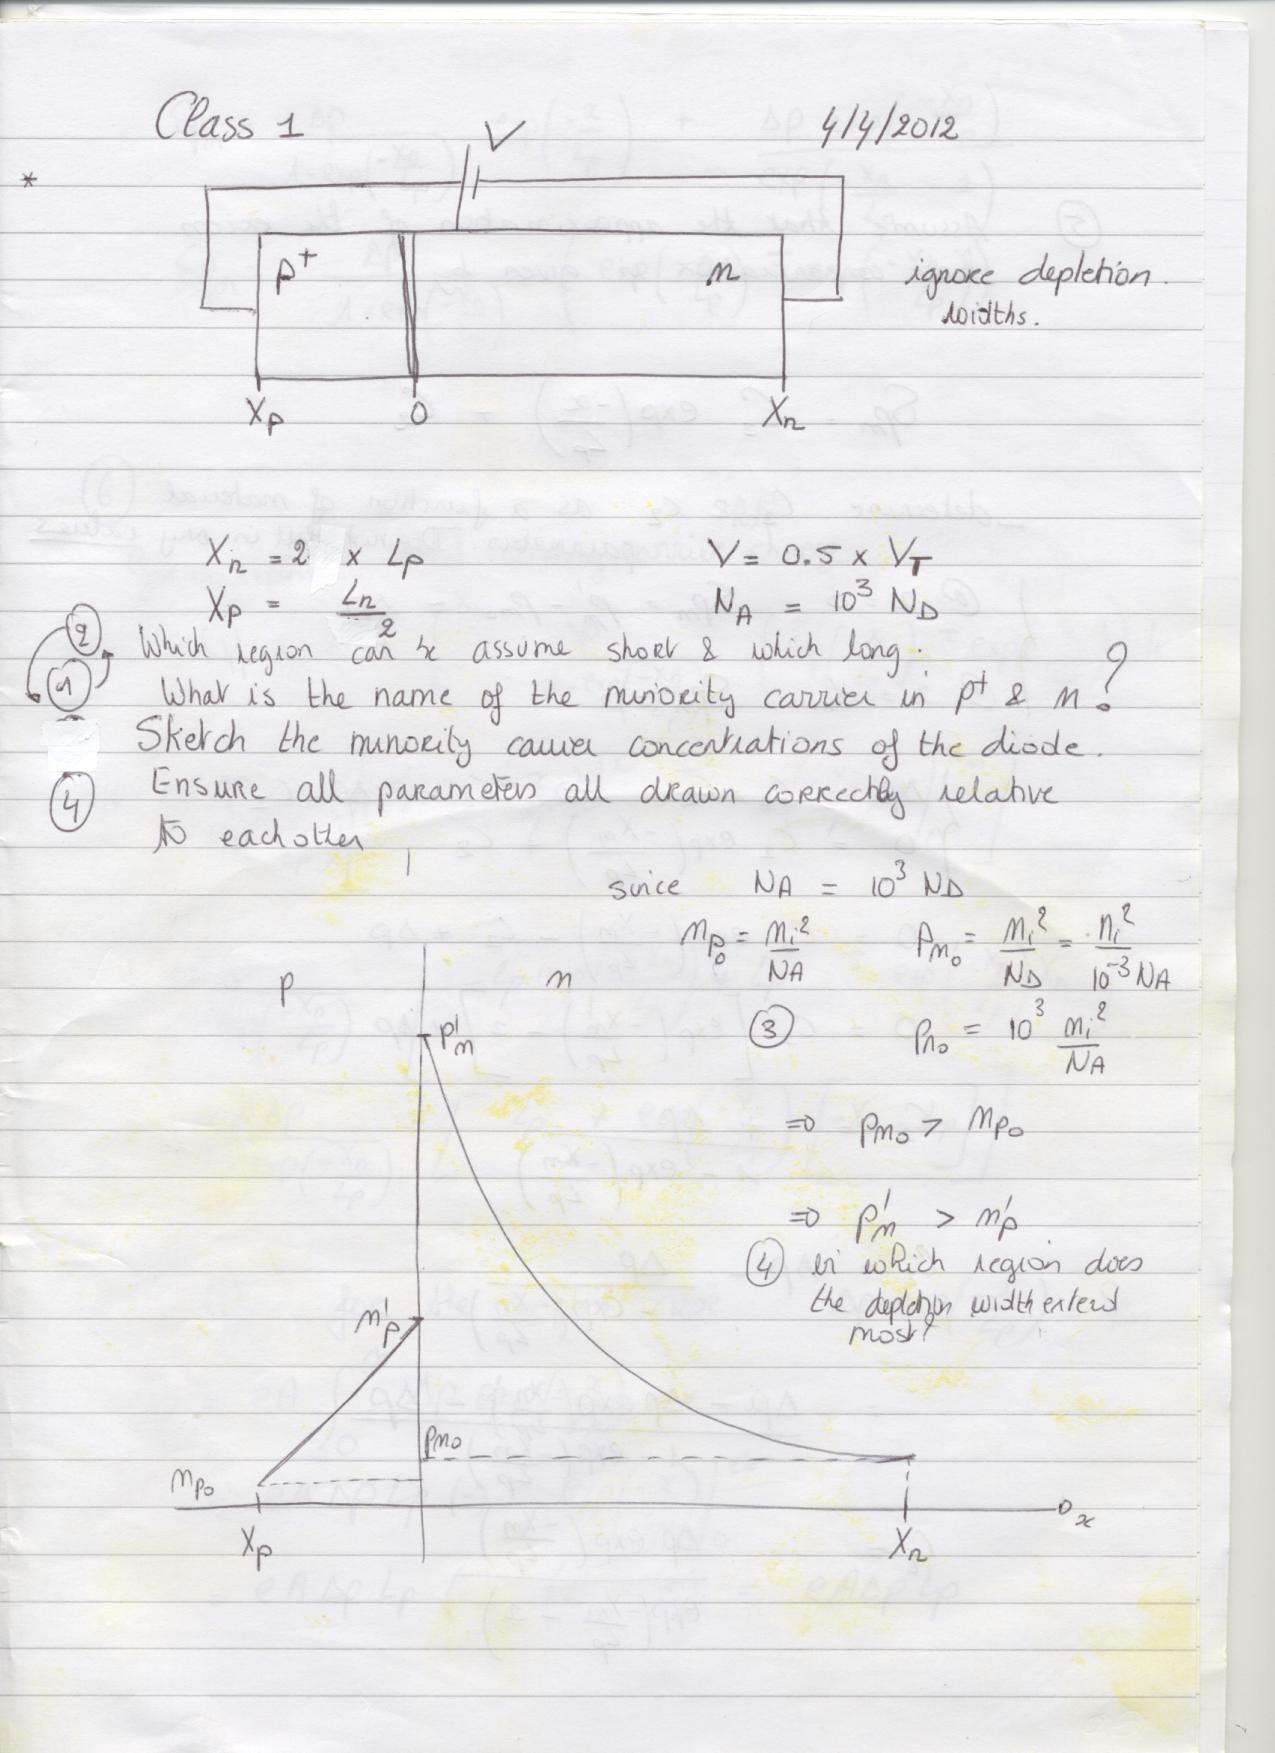 Class 1
V
4/4/2012
*
p+
n
ignore depletion.
widths.
Xp
0
Xn
Xn = 2 x Lp
V = 0.5 x VT
Xp = Ln/2
NA = 10³ ND
② Which region can be assume short & which long.
① What is the name of the minority carrier in p+ & n?
Sketch the minority carrier concentrations of the diode.
④ Ensure all parameters all drawn correctly relative
to each other
since NA = 10³ ND
np₀ = ni²/NA
pn₀ = ni²/ND = ni²/10⁻³ NA
p
n
p'n
③ pn₀ = 10³ ni²/NA
=> pn₀ > np₀
=> p'n > n'p
④ in which region does
the depletion width extend
most?
n'p
pn₀
np₀
x
Xp
Xn